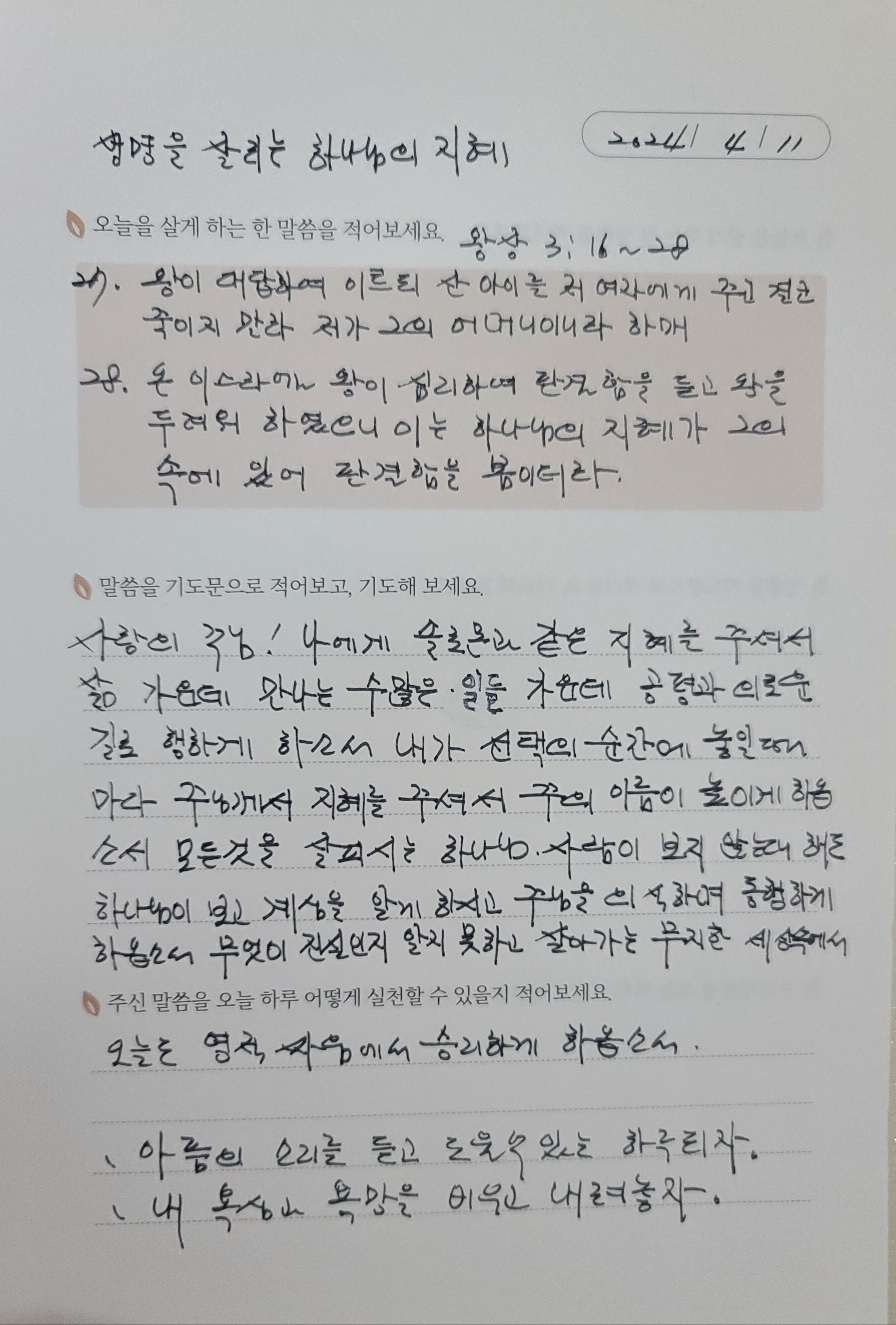 생명을 살리는 하나님의 지혜
2024 / 4 / 11
오늘을 살게 하는 한 말씀을 적어보세요.
왕상 3:16~28
27. 왕이 대답하여 이르되 산 아이를 저 여자에게 주고 결코
죽이지 말라 저가 그의 어머니이니라 하매
28. 온 이스라엘이 왕이 심리하여 판결함을 듣고 왕을
두려워 하였으니 이는 하나님의 지혜가 그의
속에 있어 판결함을 봄이더라.
말씀을 기도문으로 적어보고, 기도해 보세요.
사랑의 주님! 나에게 솔로몬과 같은 지혜를 주셔서
삶 가운데 만나는 수많은 일들 가운데 공평과 의로운
길로 행하게 하소서 내가 선택의 순간에 놓일때
마다 주님께서 지혜를 주셔서 주의 이름이 높이게 하옵
소서 모든것을 살피시는 하나님. 사람이 보지 않는다 해도
하나님이 보고 계심을 알게 하시고 주님을 의식하며 동행하게
하옵소서 무엇이 진실인지 알지 못하고 살아가는 무지한 세상속에서
주신 말씀을 오늘 하루 어떻게 실천할 수 있을지 적어보세요.
오늘도 영적 싸움에서 승리하게 하옵소서.
、아픔의 소리를 듣고 도울수 있는 하루되자.
、내 욕심과 욕망을 비우고 내려놓자.